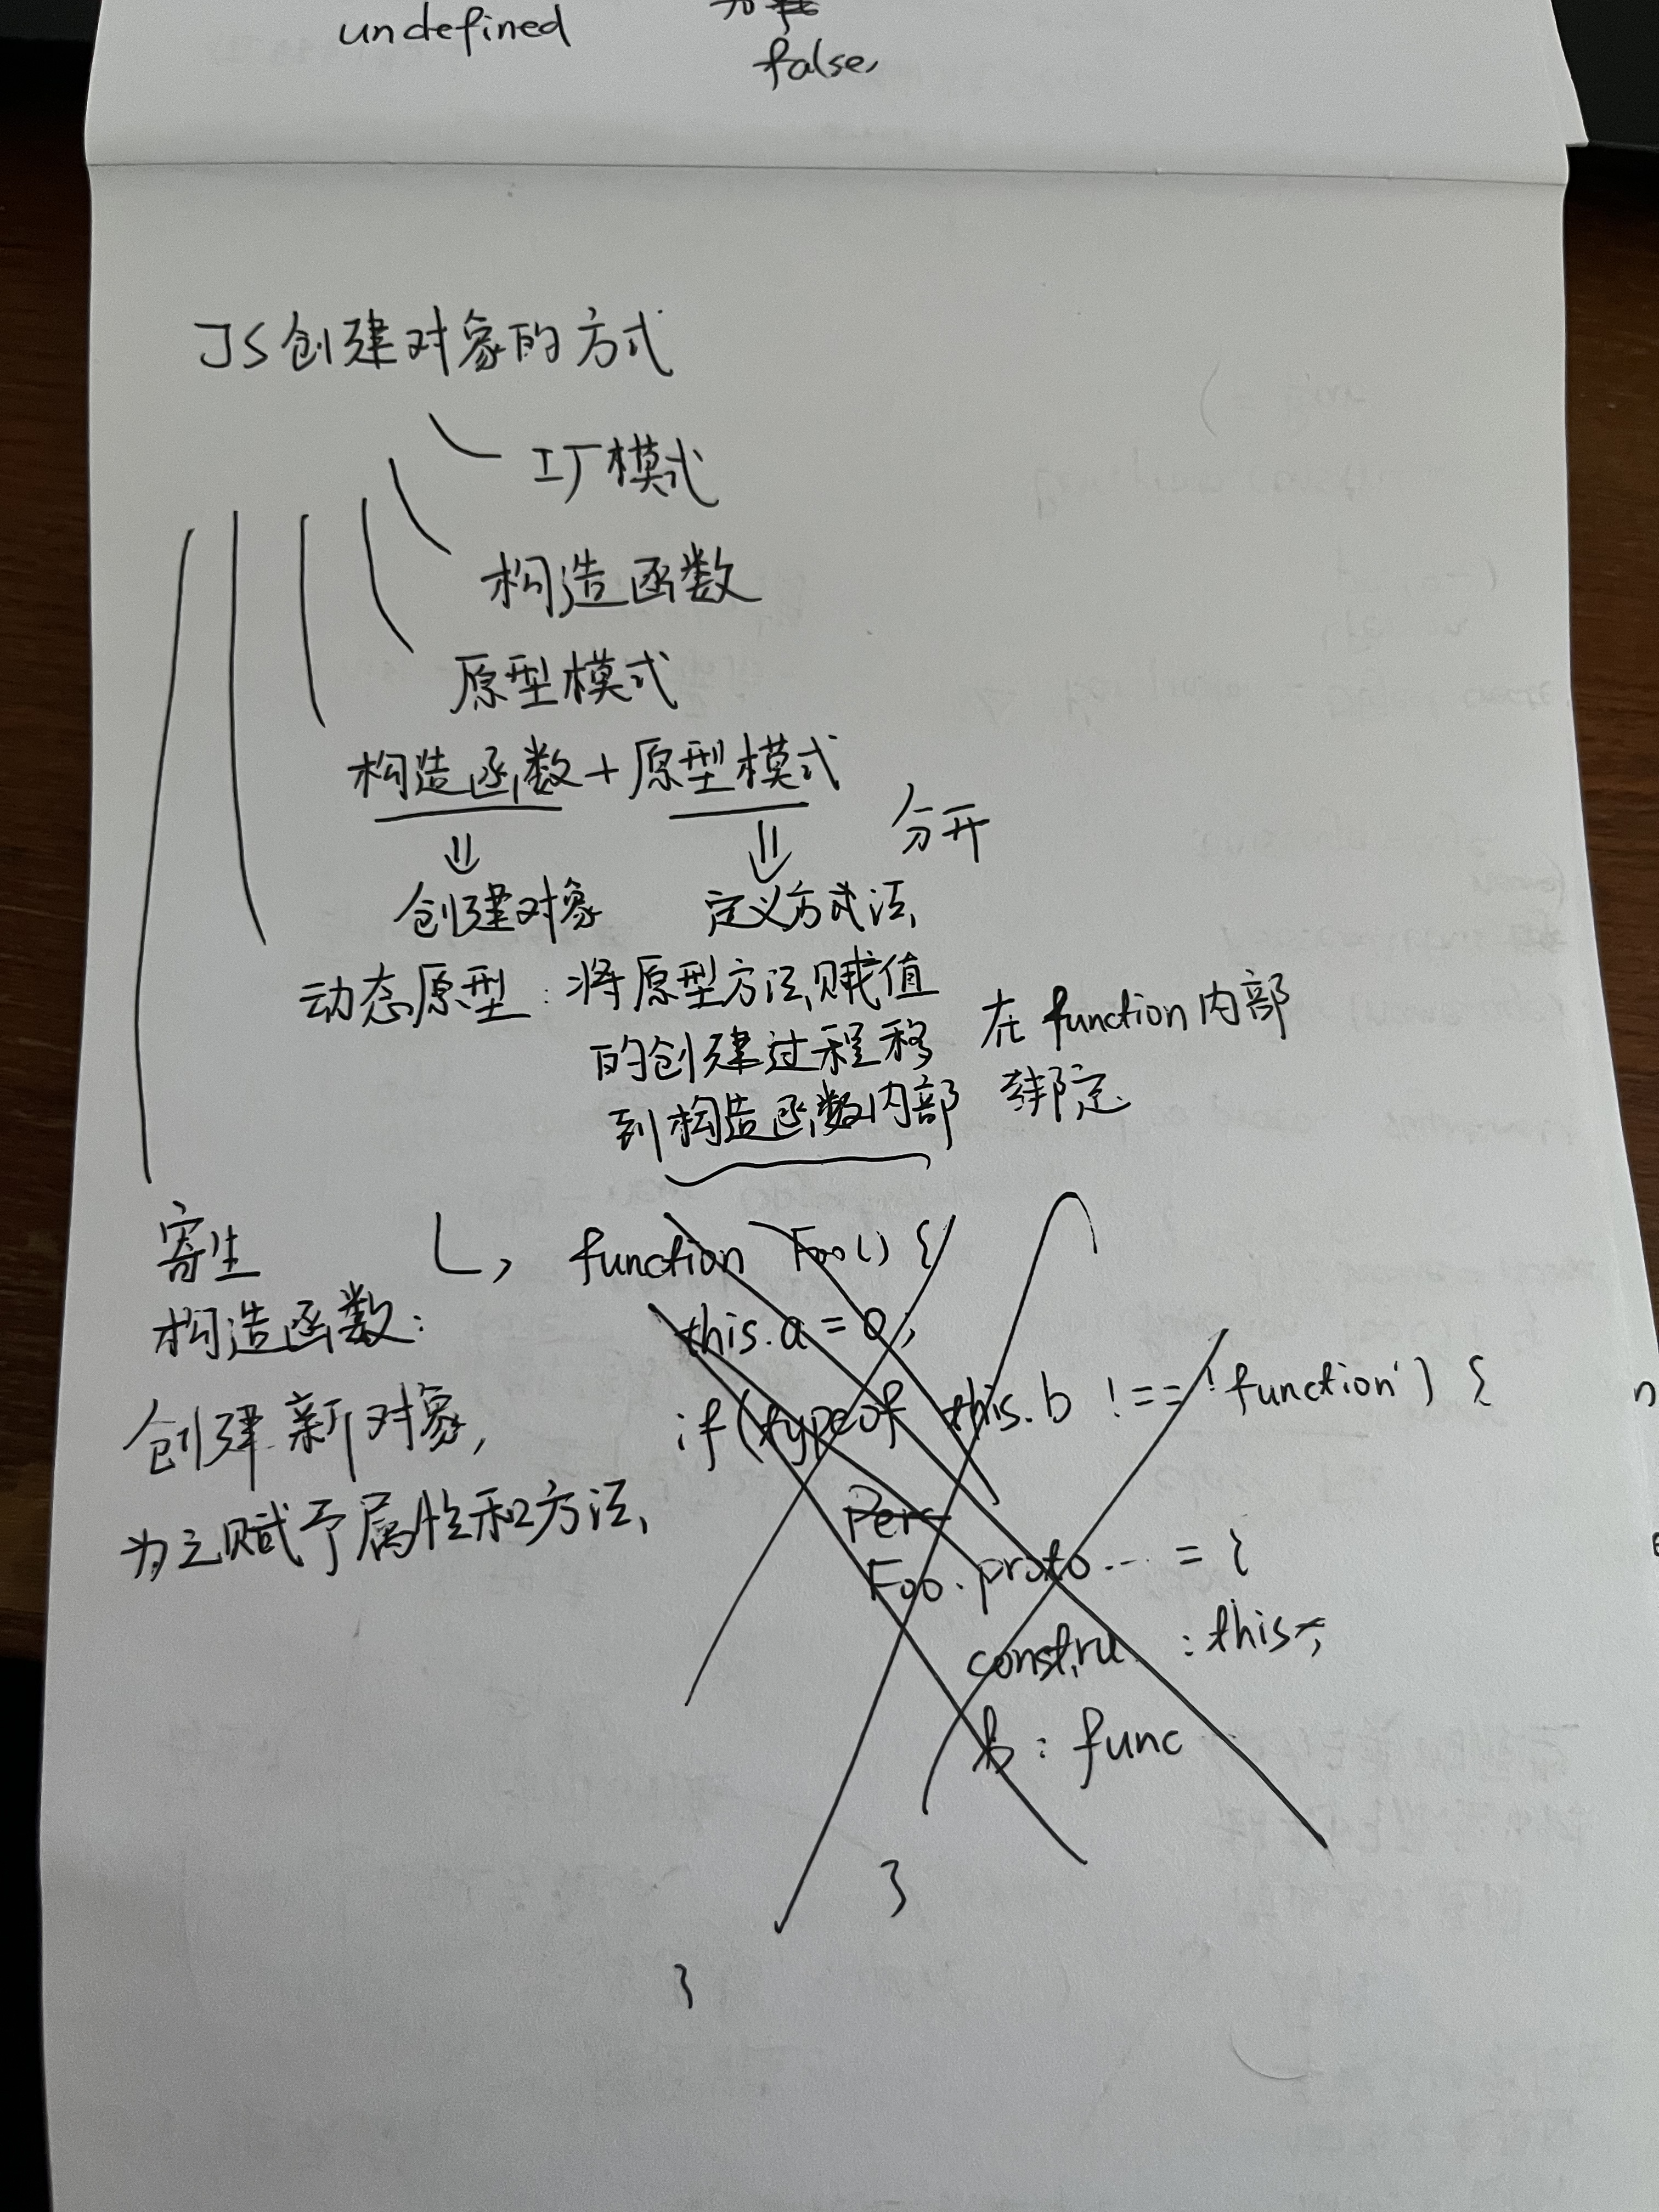 undefined
false,
JS创建对象的方式
工厂模式
构造函数
原型模式
构造函数+原型模式
分开
创建对象 定义方式法
动态原型:将原型方法赋值
的创建过程移
到构造函数内部
在function内部
绑定
寄生
构造函数:
创建新对象,
为之赋予属性和方法
function Foo() {
this.a = 0;
if (typeof this.b !== 'function') {
Per
Foo.proto... = {
constru :this;
b: func
}
}